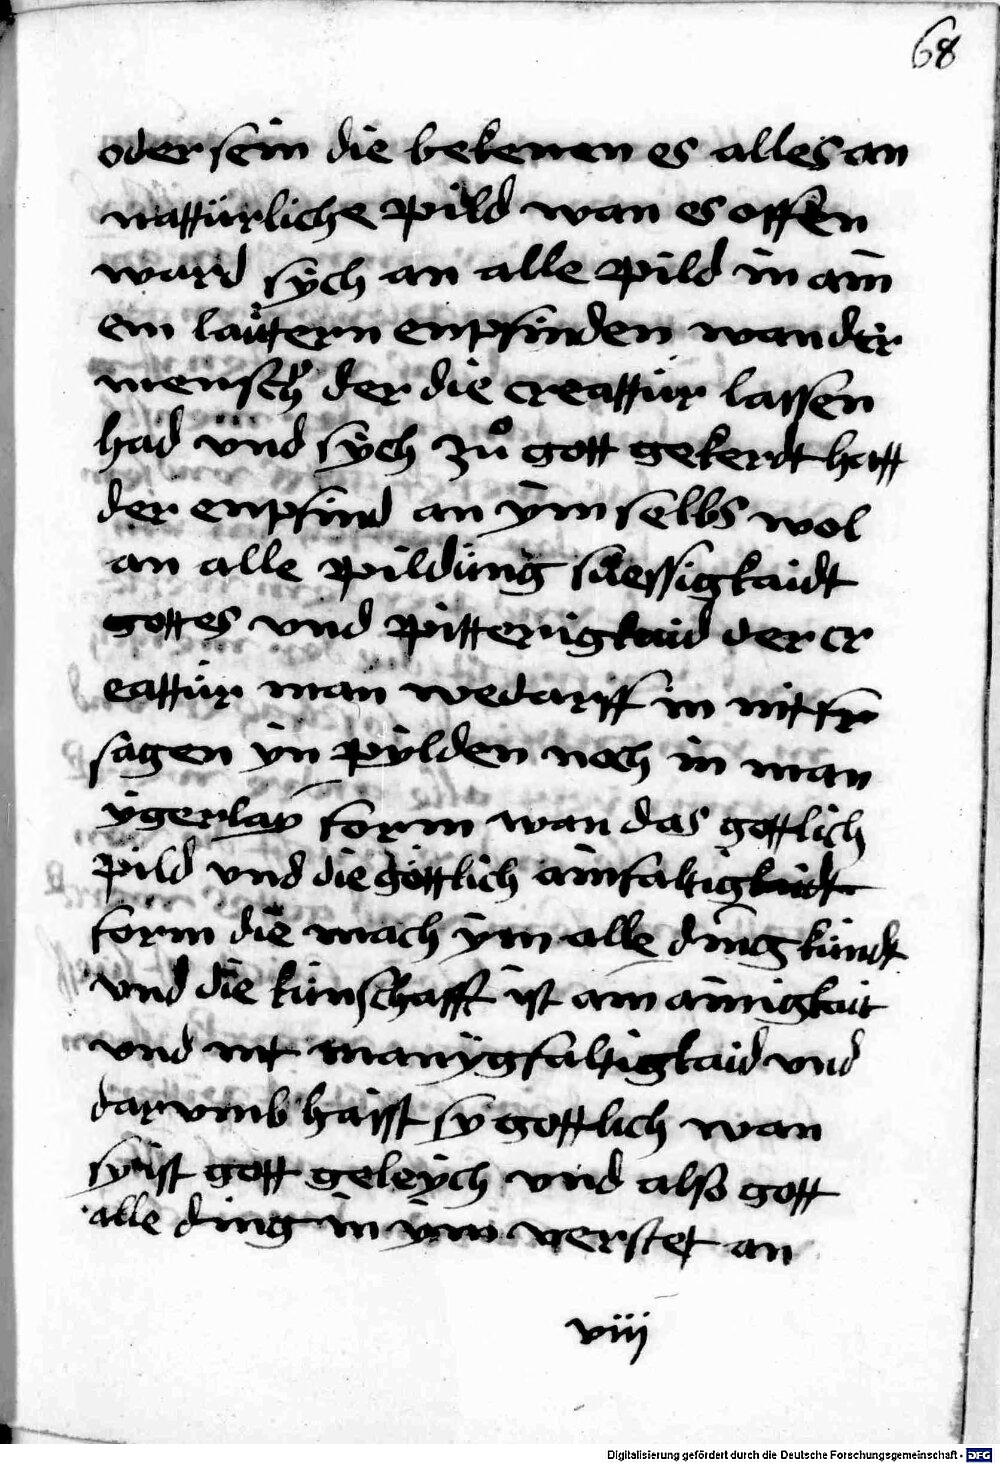 68
oder sein die bekenen es alles an
nattürliche pild wan es offen
ward sÿch an alle pild in ain
em lautern enpfinden wan der
mensch der die creattür lassen
had vnd sÿch zů gott gekerdt hatt
der enpfind an ÿm selbs wol
an alle pildüng süessigkaidt
gottes vnd pitterigkaid der cr
eattür man wedarff in nit fr
sagen ÿn pÿlden noch in man
ÿgerlaÿ form wan das gottlich
pild vnd die göttlich ainfaltigkaidt
form die mach ÿm alle ding kündt
vnd die künschafft ist am ainigkait
vnd nit manÿgfaltigkaid vnd
darvmb haisst sÿ gottlich wan
sÿ ist gott geleÿch vnd also gott
alle ding in ÿm verstet an
viij
Digitalisierung gefördert durch die Deutsche Forschungsgemeinschaft - DFG